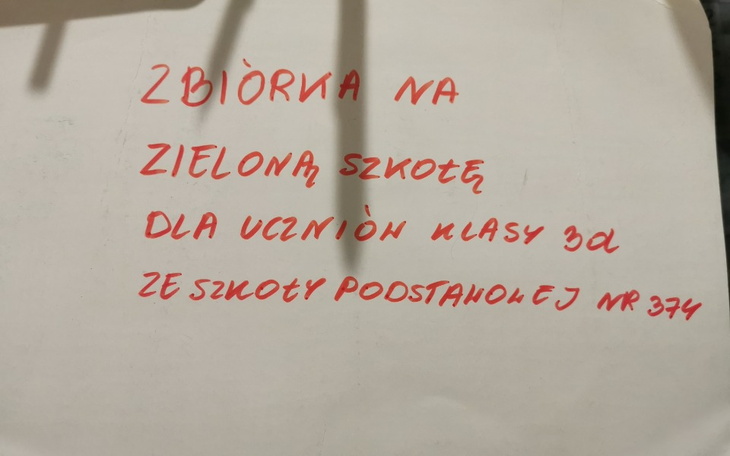 ZBIÓRKA NA
ZIELONĄ SZKOŁĘ
DLA UCZNIÓW KLASY 3d
ZE SZKOŁY PODSTAWOWEJ NR 374